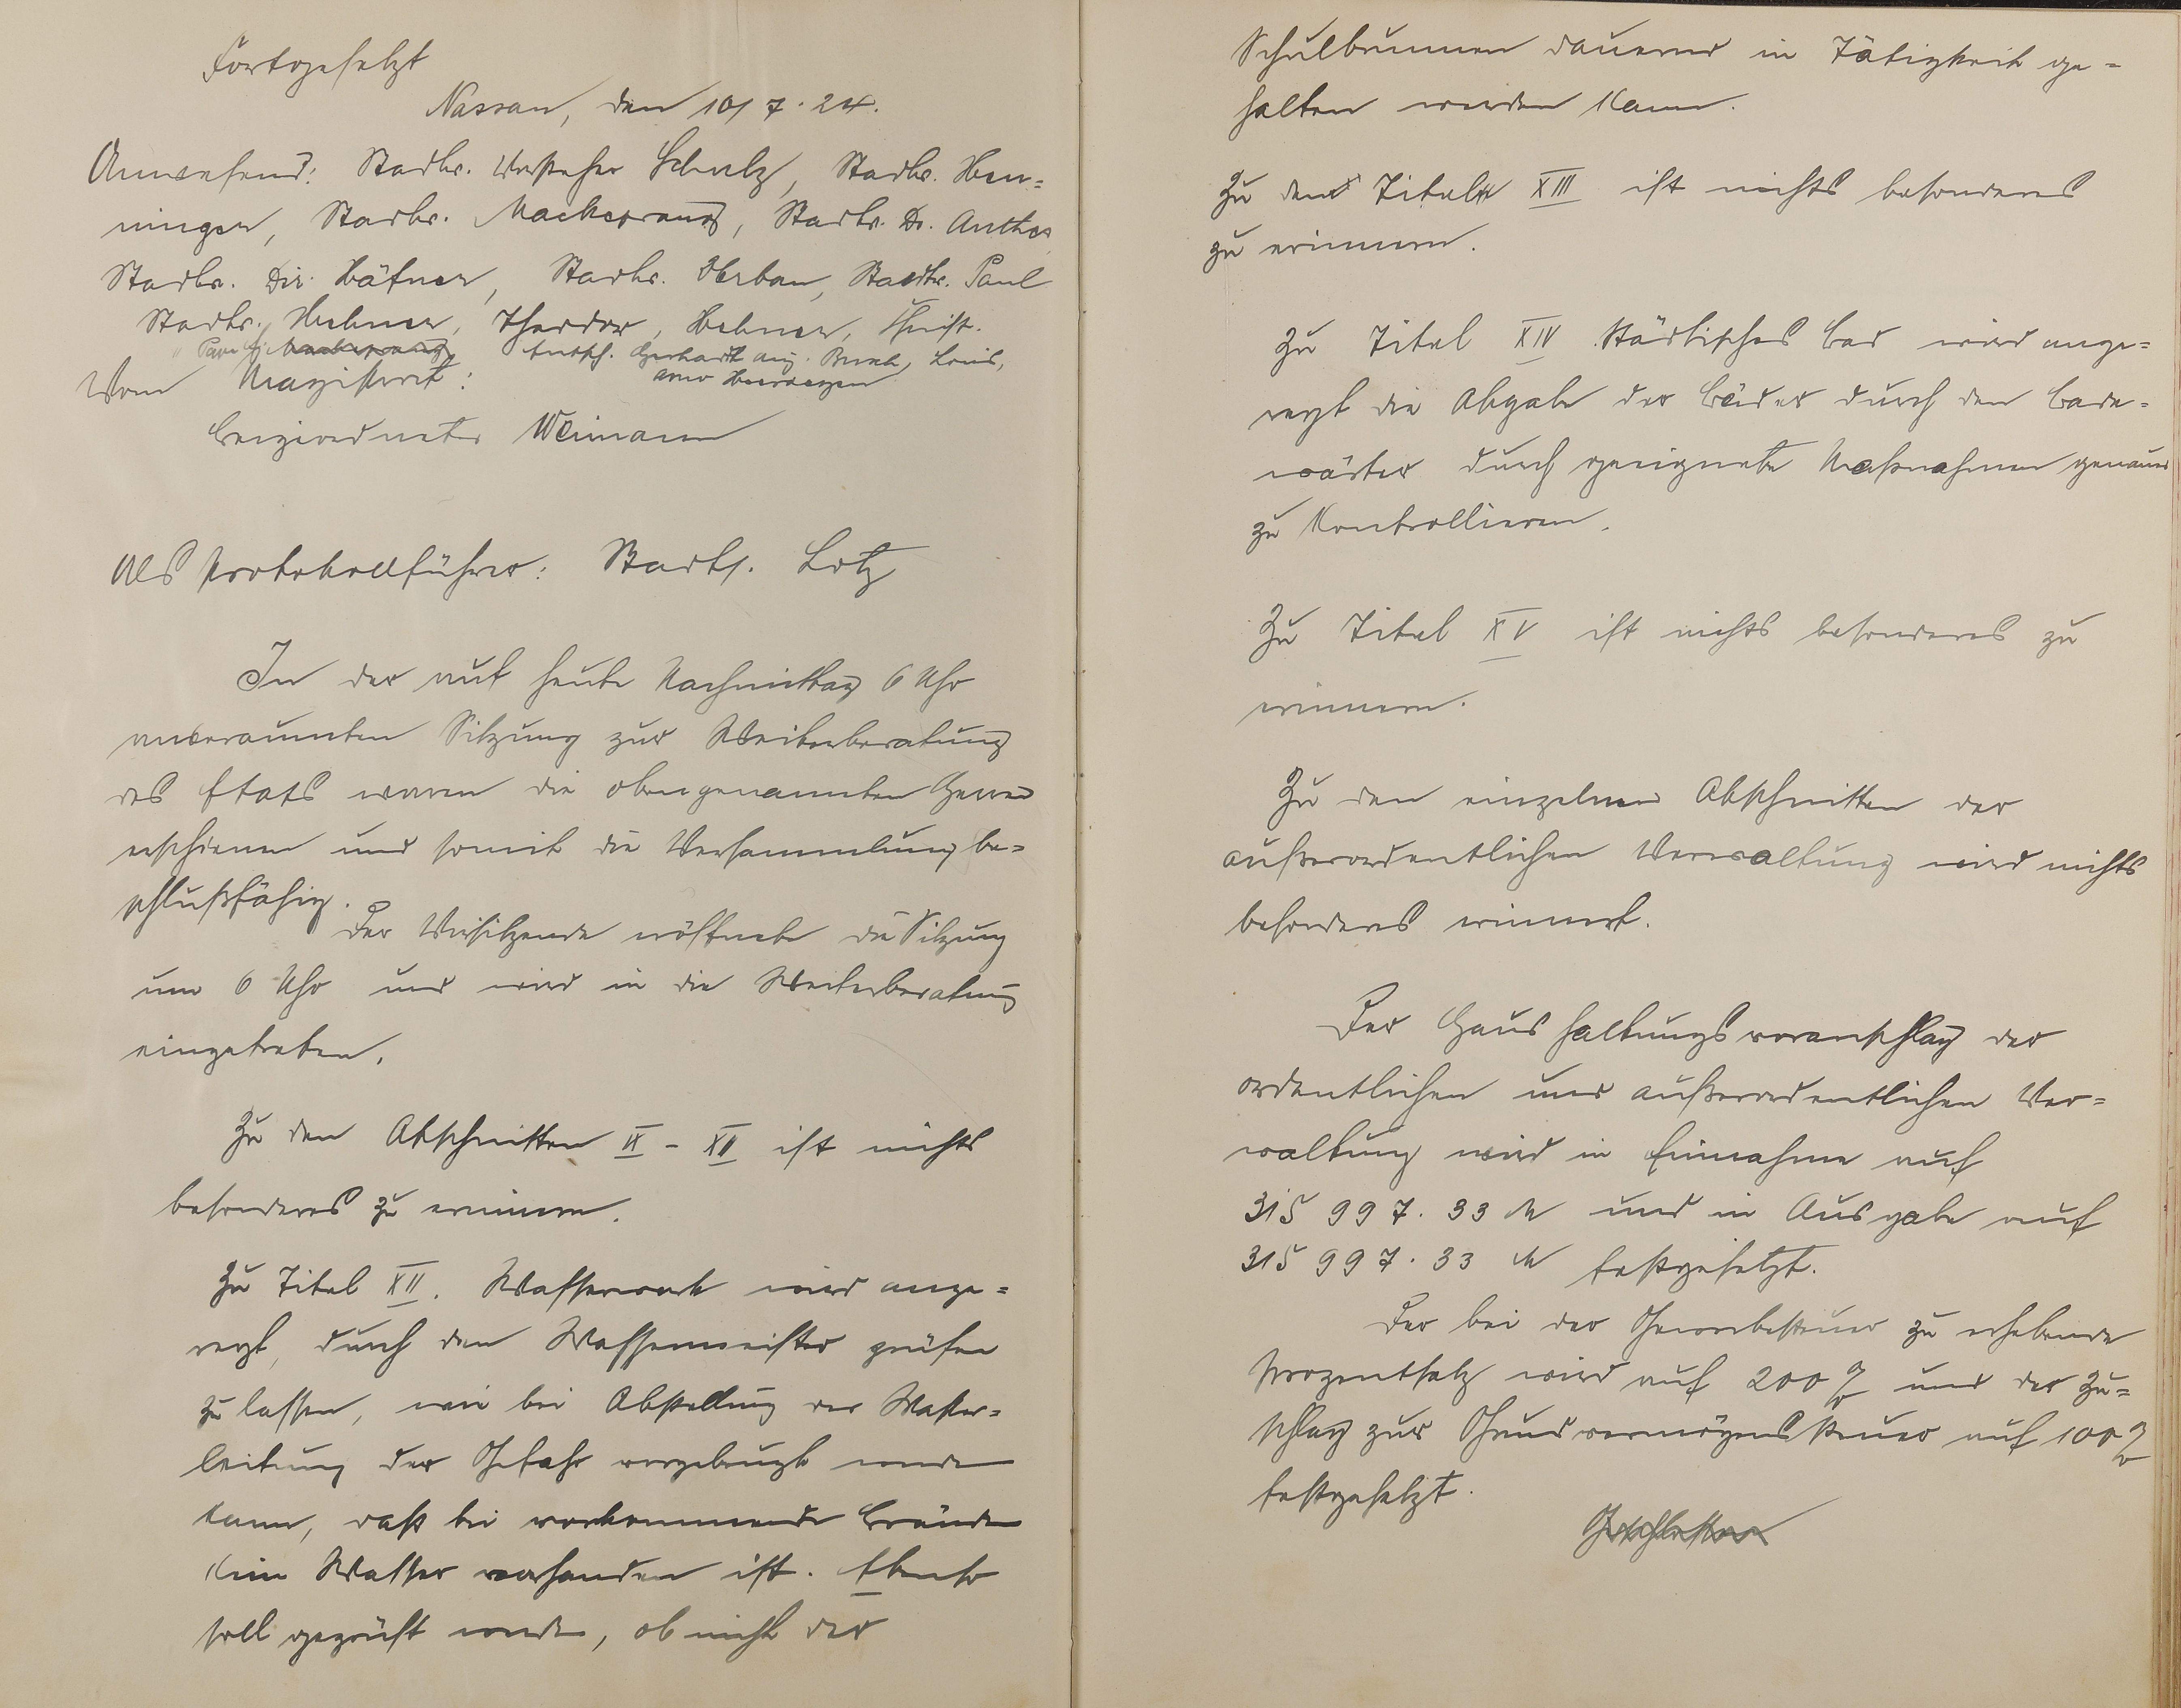 Fortgesetzt
Nassau, den 10/7.24.
Anwesend: Stadtv. Vorsteher Schulz, Stadtv. Hen=
ningen, Stadtv. Mackeprang, Stadtv. Dr. Anthes
Stadtv. Dir. Häfner, Stadtv. Urban, Stadtv. Paul
Stadtv. Hubner, Theodor, Hubner, Christ.
Gerhardt Aug. Busch, Louis,
Vom Magistrat:
Beigeordneter Weimann
Als Protokollführer: Stadts. Lotz
In der auf heute Nachmittag 6 Uhr
anberaumten Sitzung zur Weiterberatung
des Etats waren die obengenannten Herren
erschienen und somit die Versammlung be=
schlußfähig.
Der Vorsitzende eröffnete die Sitzung
um 6 Uhr und wird in die Weiterberatung
eingetreten.
Zu den Abschnitten IX - XII ist nichts
besonderes zu erinnern.
Zu Titel XII. Wasserwerk wird ange=
regt, durch den Wassermeister prüfen
zu lassen, wie bei Abstellung der Wasser=
leitung der Gefahr vorgebeugt werden
kann, daß bei vorkommende Brände
kein Wasser vorhanden ist. Ebenso
soll geprüft werden, ob nicht der
Schulbrunnen dauernd in Tätigkeit ge=
halten werden kann.
Zu dem Titel XIII ist nichts besonderes
zu erinnern.
Zu Titel XIV Städtisches Bad wird ange=
regt die Abgabe der Bäder durch den Bade=
wärter durch geeignete Maßnahmen genauer
zu kontrollieren.
Zu Titel XV ist nichts besonderes zu
erinnern.
Zu den einzelnen Abschnitten der
außerordentlichen Verwaltung wird nichts
besonderes erinnert.
Der Haushaltungsvoranschlag der
ordentlichen und außerordentlichen Ver=
waltung wird in Einnahme auf
315 997.33 M und in Ausgabe auf
315 997.33 M festgesetzt.
Der bei der Gewerbesteuer zu erhebende
Prozentsatz wird auf 200% und der Zu=
schlag zur Grundvermögenssteuer auf 100%
festgesetzt.